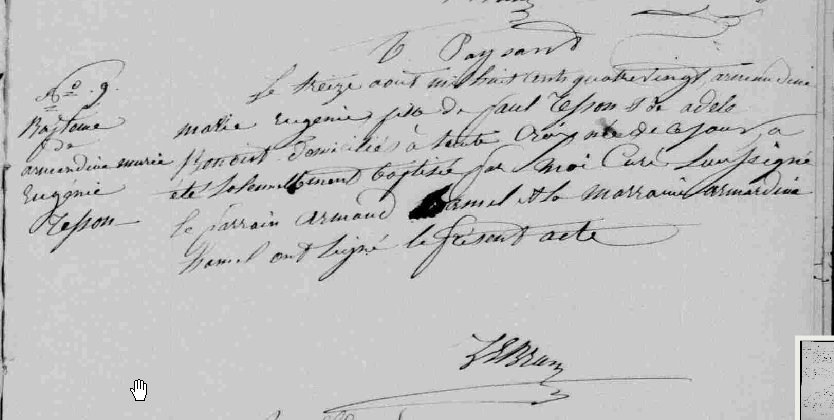 V. Paysant
No. 9.
Baptême
de
armandine marie
Eugenie
Tesson
Le treize aout mil huit cent quatre vingt armandine
marie Eugenie fille de paul Tesson & de adele
Benoist domiciliés à née de ce jour, a
été solennellement baptisée par moi Curé soussigné
le parrain armand hamel et la marraine armandine
hamel ont signé le présent acte
LeBrun